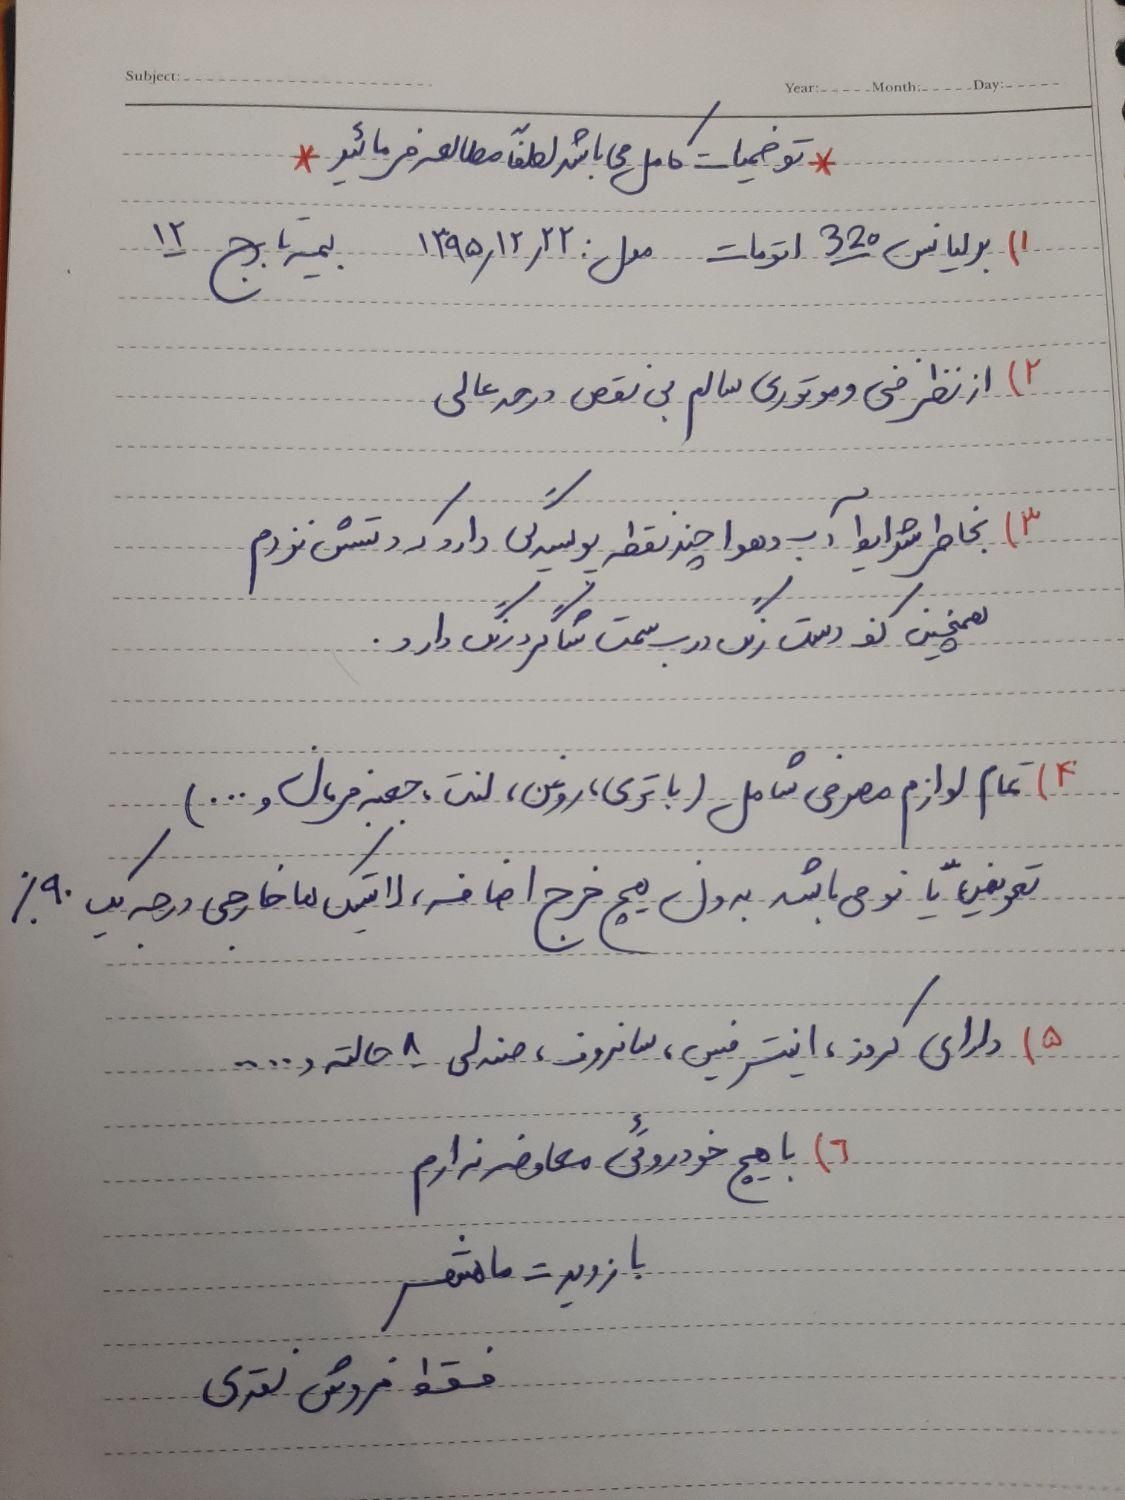 Subject:
Year: Month: Day:
* توضیحات کامل می باشد لطفاً مطالعه فرمائید *
۱) برلیانس 320 اتومات مدل: ۱۳۹۵/۱۲/۲۲ بیمه تا برج ۱۲
۲) از نظر فنی و موتوری سالم بی نقص در حد عالی
۳) بخاطر شرایط آب و هوا چند نقطه پوسیدگی دارد که دستش نزدم
همچنین کف دست رنگ درب سمت شاگرد رنگ دارد.
۴) تمام لوازم مصرفی شامل (باتری، روغن، لنت، جعبه فرمان و ...)
تعویض یا نو می باشد بدون هیچ خرج اضافه، لاستیک ها خارجی درجه یک ۹۰٪
۵) دارای کروز، اینترفیس، سانروف، صندلی ۸ حالته و ....
۶) با هیچ خودروئی معاوضه ندارم
بازدید ماهشهر
فقط فروش نقدی